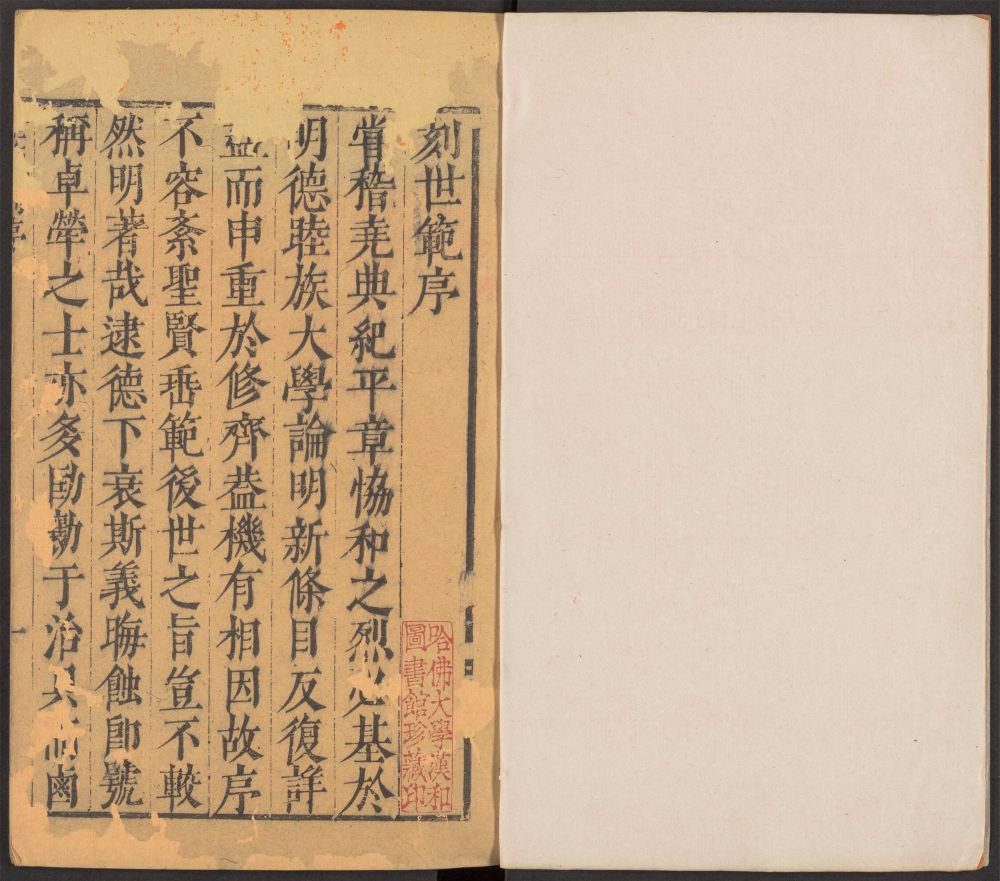 刻世範序
嘗稽堯典紀平章恊和之烈必基於
明德睦族大學論明新條目反復詳
並而申重於修齊葢機有相因故序
不容紊聖賢垂範後世之旨豈不較
然明著哉逮德下衰斯義晦蝕卽號
稱卓犖之士亦多劻勷于治具而鹵
一
哈佛大學漢和
圖書館珍藏印